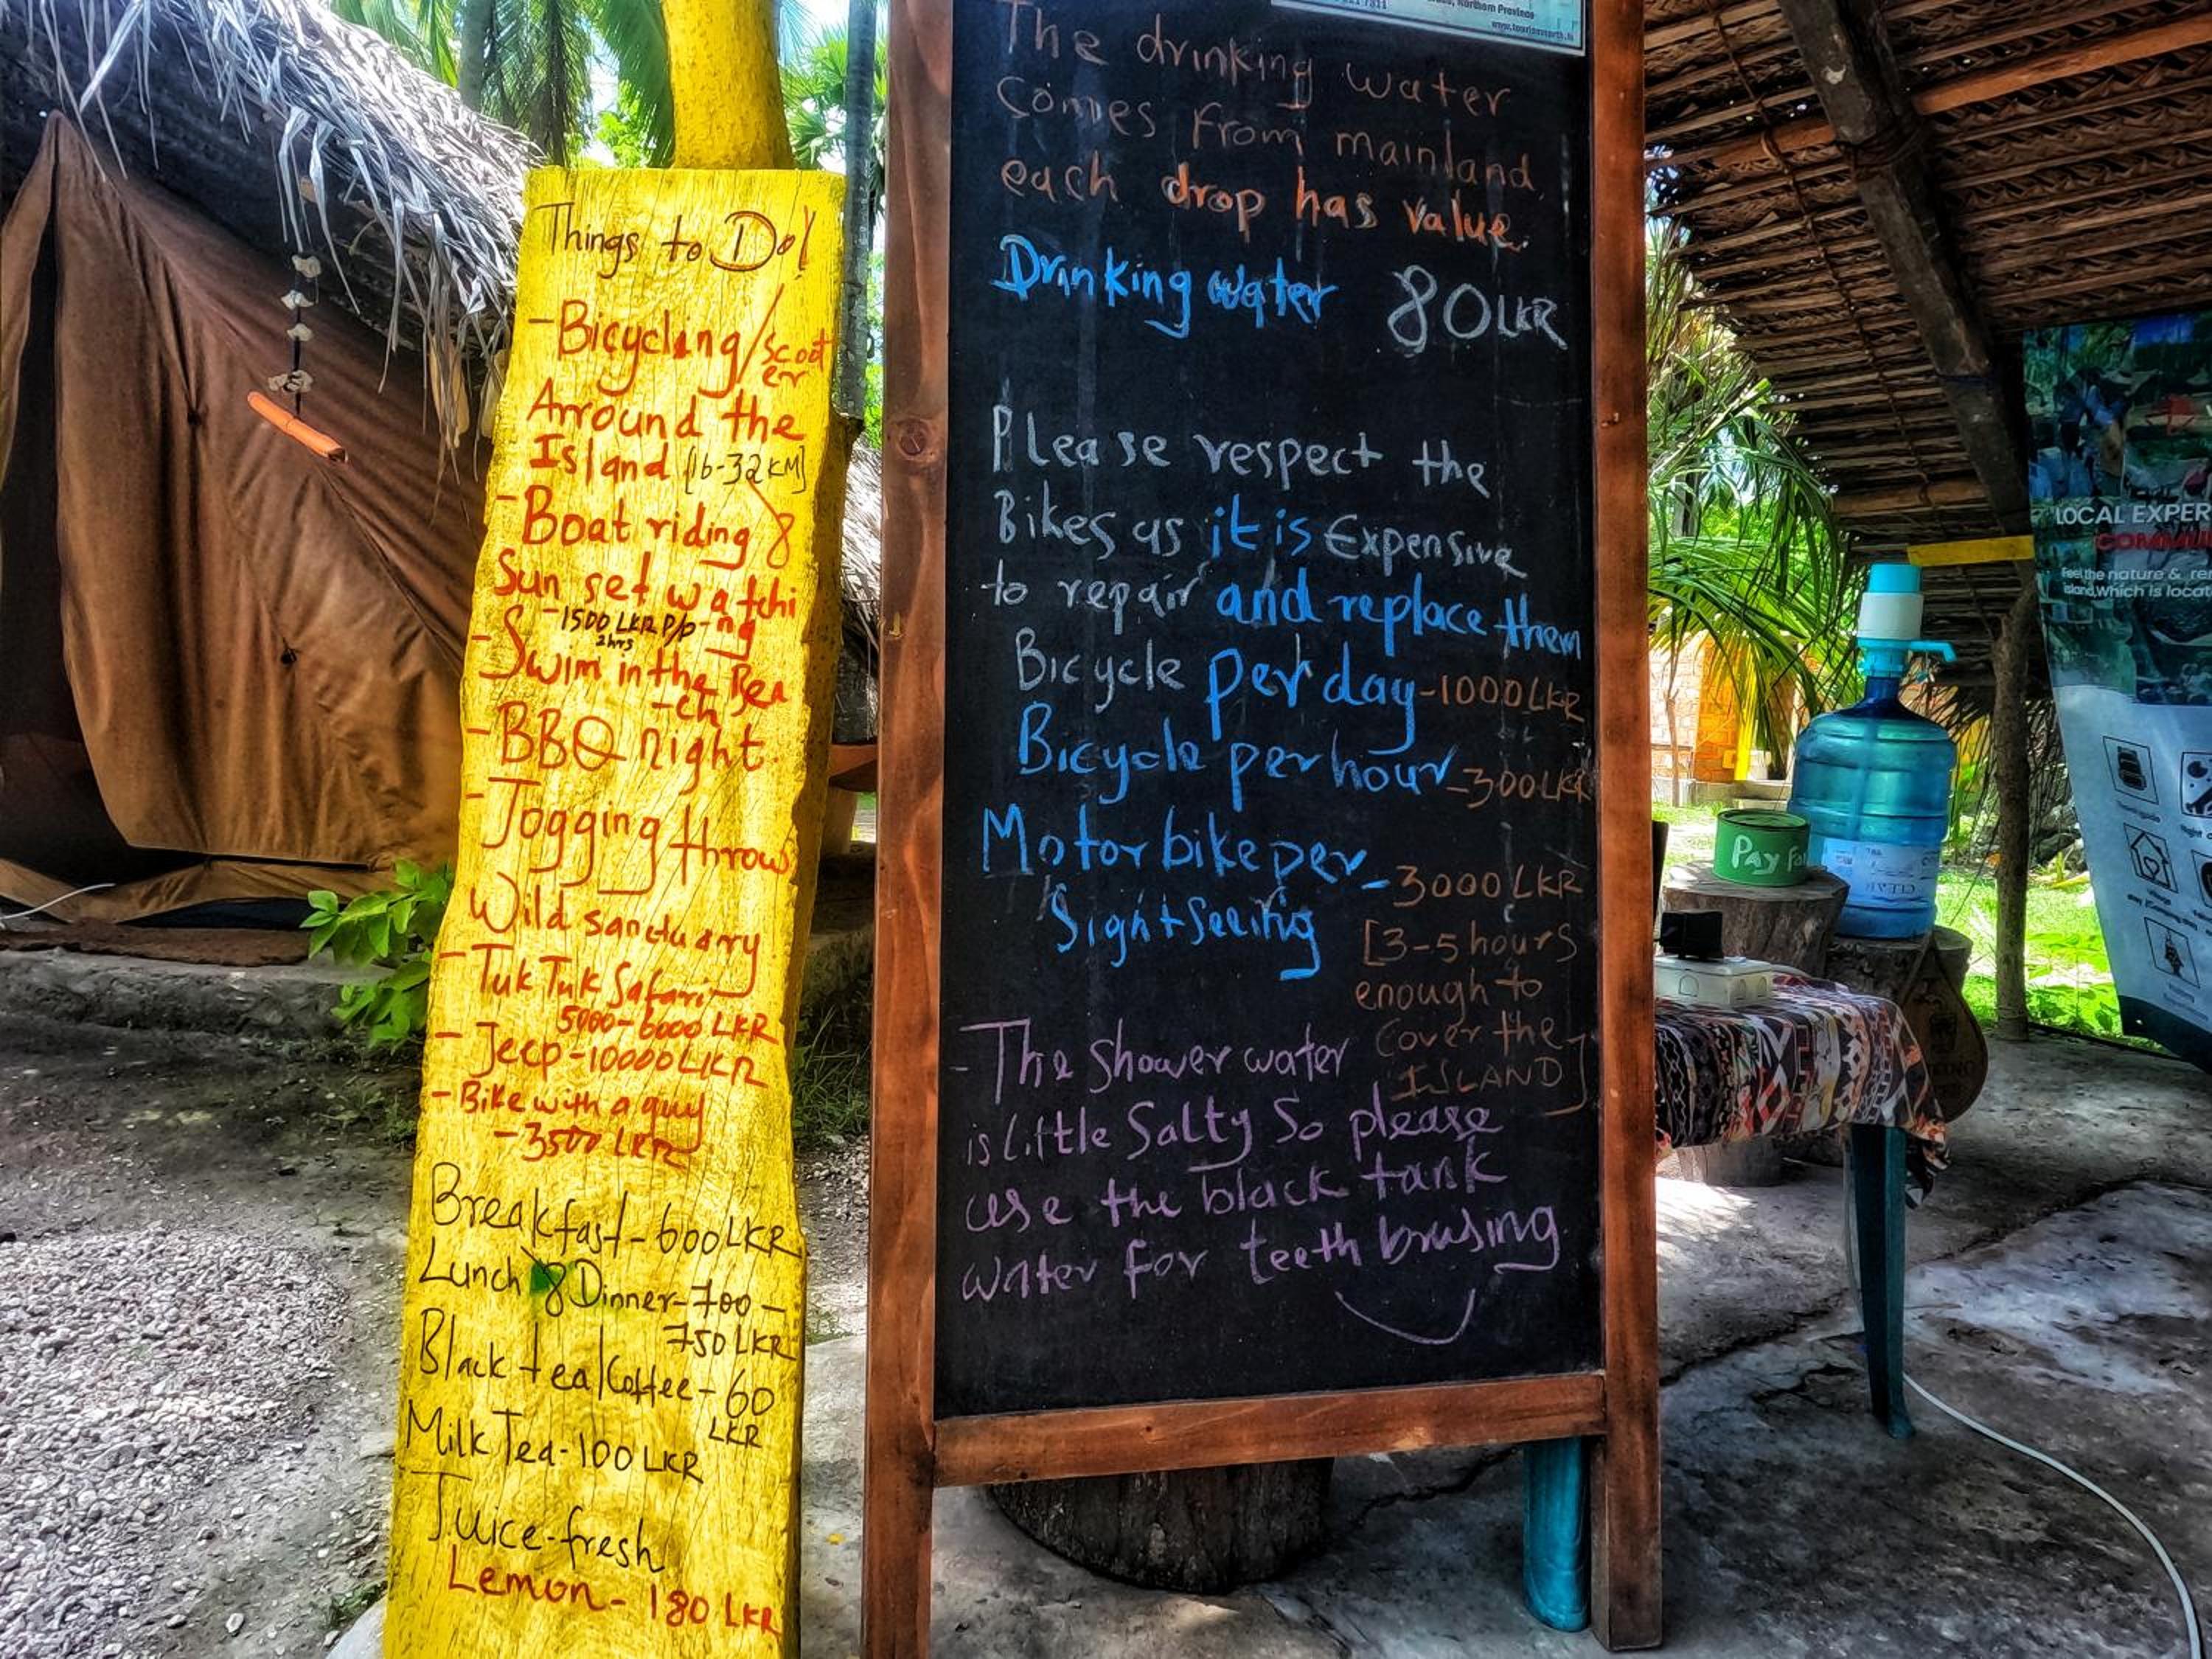 Things to Do!
- Bicycling/scoot
er
Arround the
Island [16-32 KM]
- Boat riding &
Sun set watchi
-ng
-1500 LKR P/p
2hrs
- Swim in the Bea
-ch
- BBQ night.
- Jogging throw
Wild sanctuarry
- Tuk Tuk Safari-
5000-6000 LKR
- Jeep-10000 LKR
- Bike with a guy
-3500 LKR
Breakfast-600 LKR
Lunch & Dinner-700-
750 LKR
Black tea/Coffee-60
LKR
Milk Tea-100 LKR
Juice-fresh
Lemon-180 LKR
Northern Province
The drinking water
comes From mainland,
each drop has value.
Drinking water 80 LKR
Please respect the
Bikes as it is Expensive
to repair and replace them
Bicycle per day-1000 LKR
Bicycle per hour-300 LKR
Motor bike per-3000 LKR
Sightseeing
[3-5 hours
enough to
cover the
ISLAND]
-The Shower water
is little Salty So please
use the black tank
water for teeth brusing
Pay Fo
LOCAL EXPER
COMMU
Feel the nature & re
island, which is locat